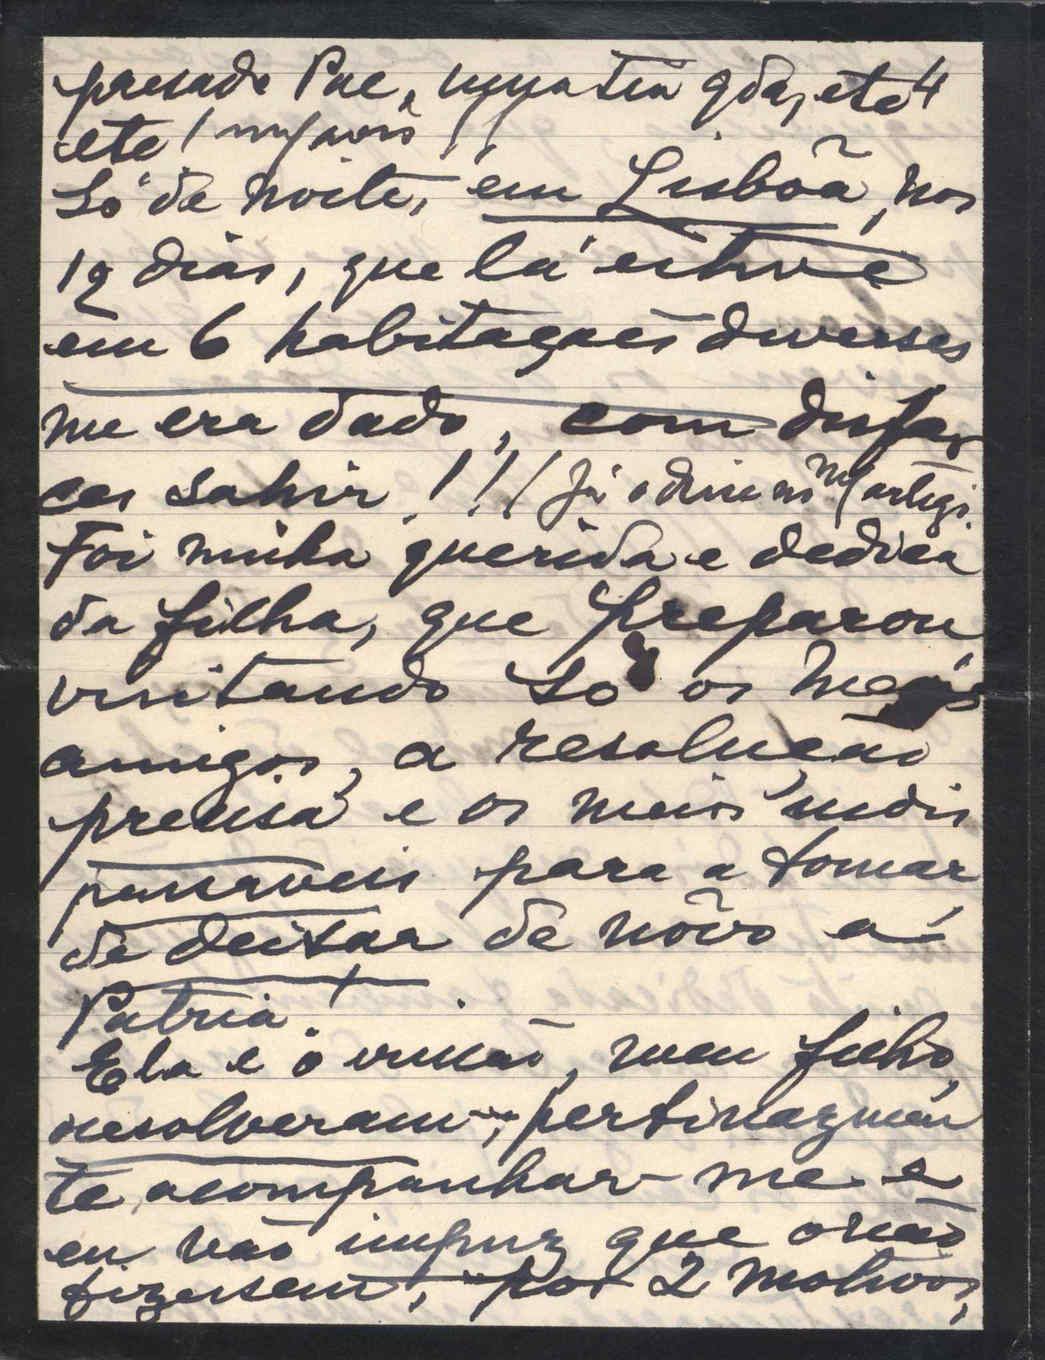 Pae,
ete
Só de noite, em Lisbôa, nos
12 dias, que lá estive
em 6 habitações diversas
me era dado, com disfar
ces sahir!!! (Já o disse
Foi minha querida e dedica
da filha, que preparou,
visitando só os meus
amigos, a resolução
precisa e os meios indis
pensaveis para a tomar,
de deixar de nôvo a
Patria!
Ela e o irmão, meu filho,
resolveram, pertinazmen
te acompanhar-me e
eu não impuz que o não
fizessem, por 2 motivos,